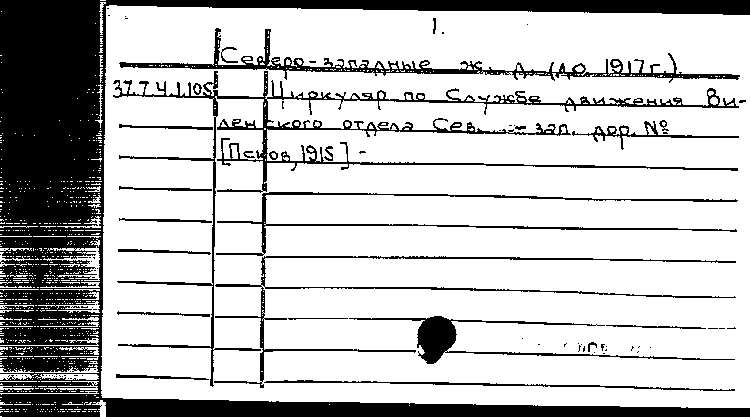 1.
Северо-западные ж. д. (до 1917 г.)
37.7.4.1.105 Циркуляр по Службе движения Ви-
ленского отдела Сев. зап. дор. №
[Псков, 1915] -